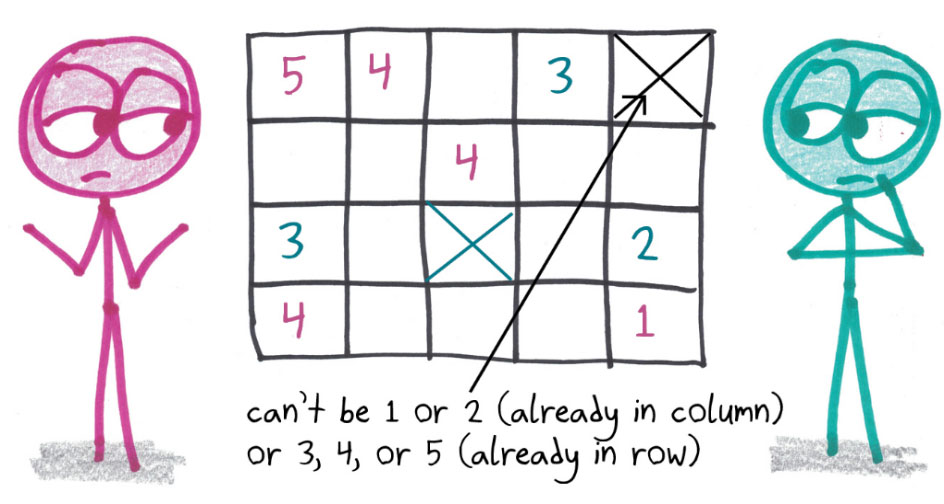 5 4 3
4
3 2
4 1
can't be 1 or 2 (already in column)
or 3, 4, or 5 (already in row)